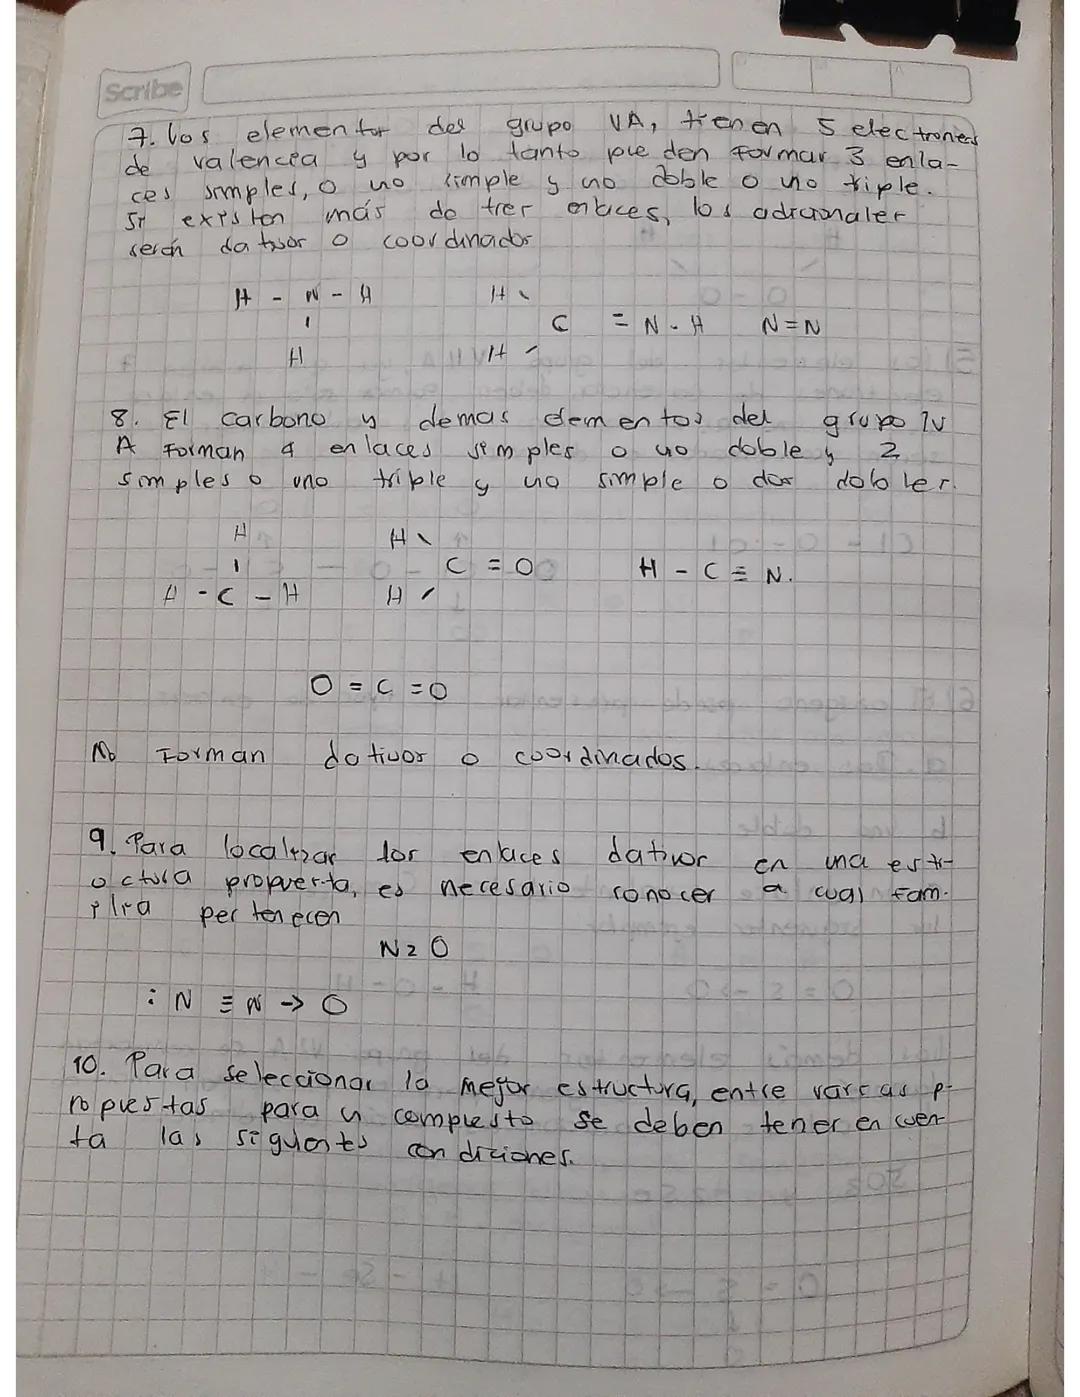 Scribe
7. los elementor del grupo VA, tienen 5 electrones
de valencia y por lo tanto pueden formar 3 enla-
ces simples, o uno simple y uno doble o uno triple.
Si existen más de tres enlaces, los adicionaler
serán dativor o coordinador
H - N - H H \
| C = N - H N = N
H H /
8. El carbono y demas elementos del grupo IV
A Forman 4 enlaces simples o uno doble y 2
simples o uno triple y uno simple o dos dobler.
H H \
| C = O H - C ≡ N.
H - C - H H /
O = C = O
No Forman dativor o coordinados.
9. Para localizar los enlaces dativor en una estr-
uctura propuesta, es necesario conocer a cual fam-
ilia pertenecen
N2O
: N ≡ N → O
10. Para seleccionar la mejor estructura, entre varias p-
ropuestas para un compuesto se deben tener en cuen-
ta las siguientes condiciones.